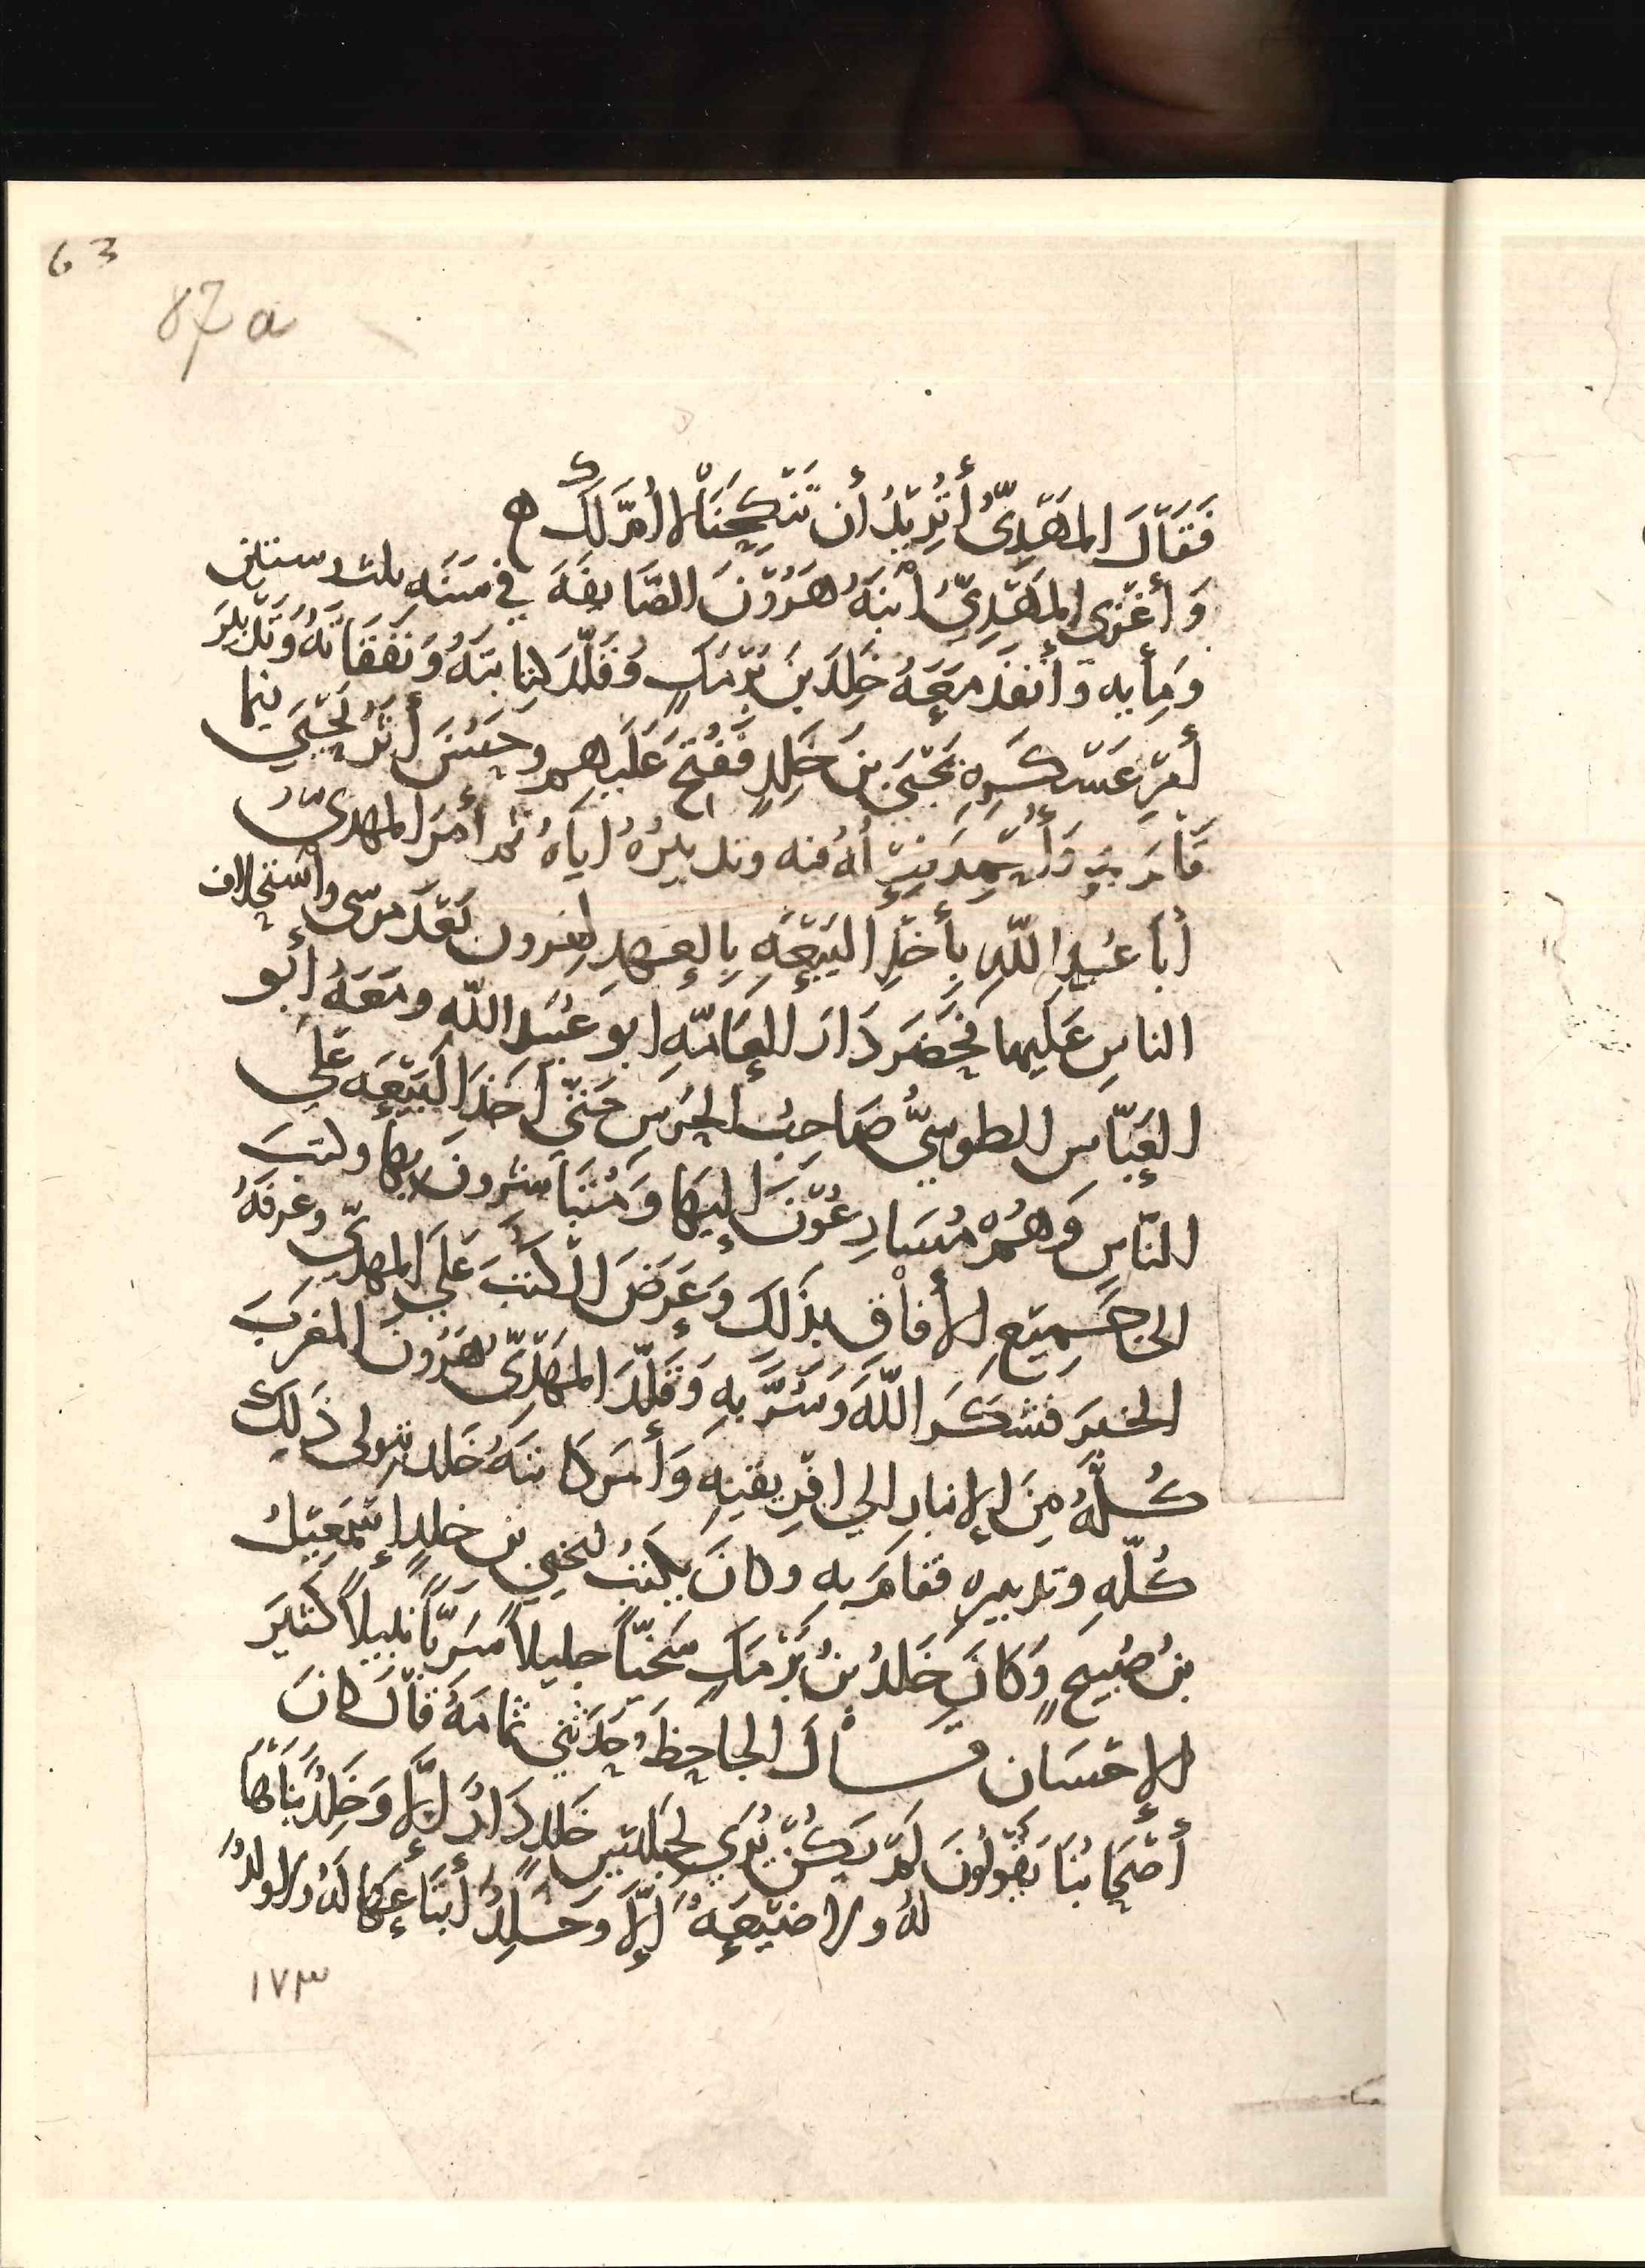 63
87a
فَقَالَ المَهْدِيُّ أَتُرِيدُ أَن تَنكِحَنَا لا أُمَّ لَكَ ه
وَأَغْزى المَهْدِيُّ ابْنَهُ هَرُوْنَ الصَّايفَهَ في سَنَه ثلث وستين
وَمِأيه وَأَنفَذَ مَعَهُ خَلِدَ بنَ بَرْمَكٍ وَقَلَّدَ كِتابَتَهُ وَنَفَقَاتَهُ وَتَدبيرَ
أَمْرِ عَسْكَرِهِ يَحْيَى بنَ خَلِدٍ فَفُتِحَ عَلَيهم وحَسُنَ أَثَرُ يَحْيَى فيما
قَامَ بِهِ وَأُحْمِدَ بتِرْاُهُ فيه وتدبيرُهُ اياهُ ثمَّ أمَرَ المهدىُّ
أَبَا عُبَيدِ اللّهِ بِأَخْذِ البَيْعَهِ بِالعَهدِ لهَرون بَعْدَ موسى واَستحلاف
الناسِ عَليهما فحَضَرَ دَارَ العَامَّهِ ابو عُبَيد اللّه ومَعَهُ أبو
العَبّاسِ الطوسِيُّ صَاحِبُ الحَرَسِ حَتّى أَخَذَ البَيْعَه عَلى
النّاسِ وَهُمْ مُسَارِعُوْنَ اليهَا وَمُتَبَاشرونَ بها وكتبَ
الى جَمِيْعِ الأَفاْقِ بذَلِكَ وَعَرَضَ الكُتُبَ عَلَى المهدىّ وعرفَهُ
الخبرَ فشكَرَ اللّهَ وَسُرَّ بِهِ وَقَلَّدَ المَهْدِىُّ هَرُونَ المغربَ
كُلَّهُ مِنَ الانبارِ الى افرِيقيهِ وَأَمَرَ كاتبَهُ خَلد بتولى ذَلِكَ
كُلِّهِ وتدبيرِهِ فقامَ بِهِ وكانَ يكتبُ ليحيى بنِ خلِدٍ إسْمَعِيْلُ
بنُ صُبَيحٍ وَكَانَ خَلدُ بنُ بَرْمَكٍ سَخيّاً جليلاً سَريّاً نبيلاً كثيرَ
الإحسَان قَالَ الجاحِظُ وحَدَّثَنى ثمامَهُ قَالَ كانَ
أَصْحَابُنَا يَقُولُونَ لَمْ يَكُنْ يُرَى لجَلِيسِ خَلِدٍ دَارٌ إلاَّ وَخَلِدٌ بَنَاهَا
لهُ ولا ضَيْعَهٌ إلاَّ وَخَلِدٌ أبتَاعَهَا لَهُ ولا ولدٌ
١٧٣